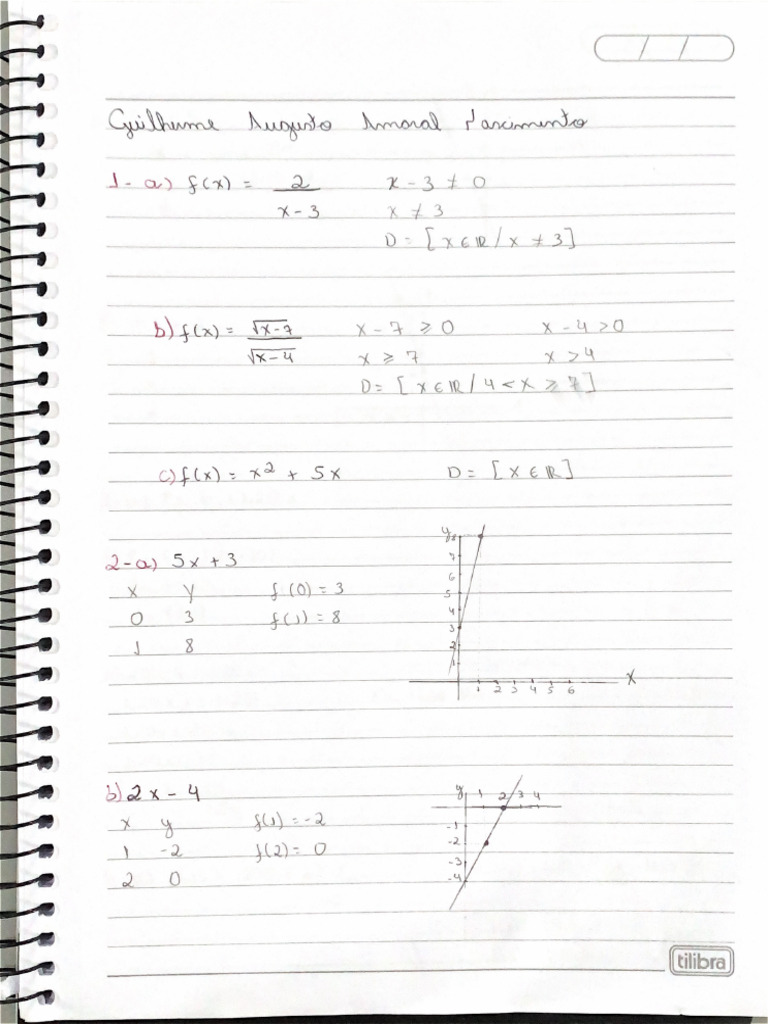 / /
Guilherme Augusto Amaral Nascimento
1-a) f(x) = 2/(x-3) x-3 ≠ 0
x ≠ 3
D = [x ∈ ℝ / x ≠ 3]
b) f(x) = √x-7/√x-4 x-7 ≥ 0 x-4 > 0
x ≥ 7 x > 4
D = [x ∈ ℝ / 4 < x ≥ 7]
c) f(x) = x² + 5x D = [x ∈ ℝ]
2-a) 5x + 3
x y f(0) = 3
0 3 f(1) = 8
1 8
y
8
7
6
5
4
3
2
1
1 2 3 4 5 6 x
b) 2x - 4
x y f(1) = -2
1 -2 f(2) = 0
2 0
y 1 2 3 4
-1
-2
-3
-4
tilibra